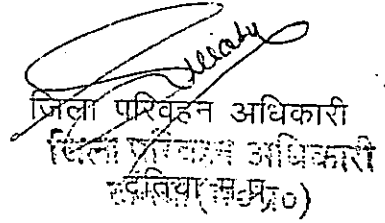 जिला परिवहन अधिकारी
जिला परिवहन अधिकारी
दतिया म.प्र.